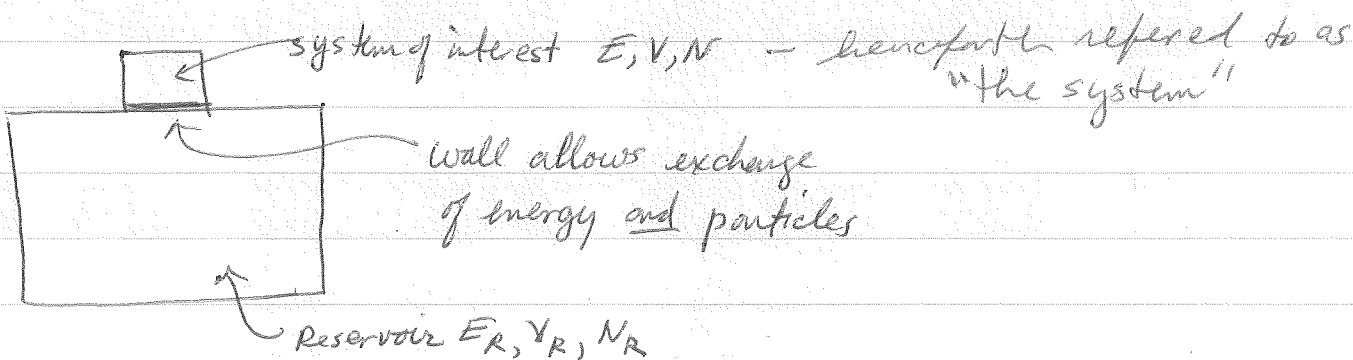 system of interest E, V, N - henceforth refered to as
"the system"
wall allows exchange
of energy and particles
Reservoir E_R, V_R, N_R